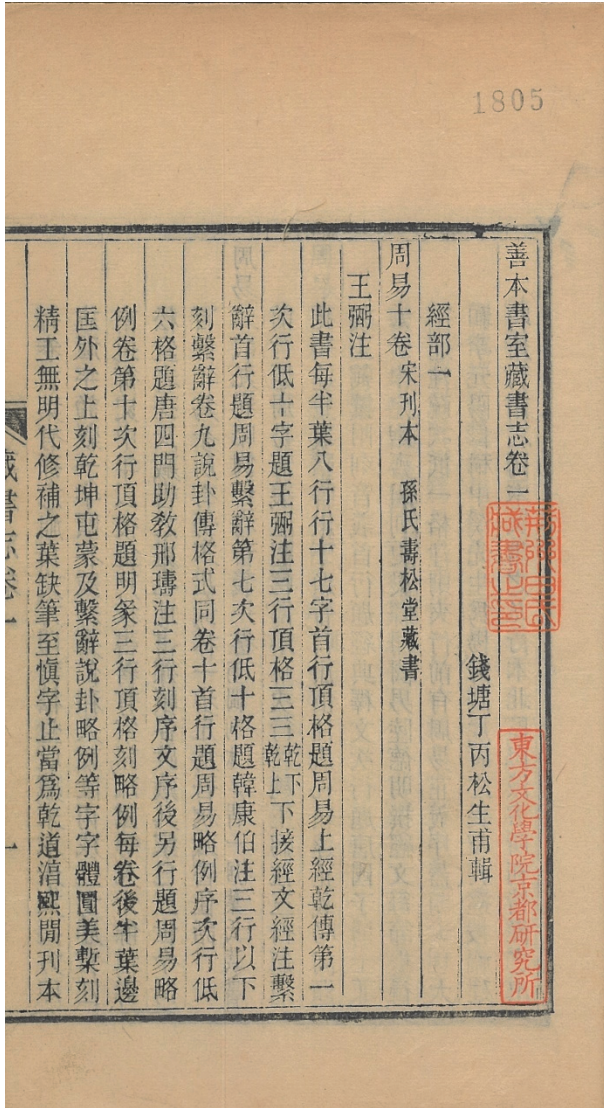 1805
善本書室藏書志卷一
錢塘丁丙松生甫輯
經部一
周易十卷 宋刊本 孫氏壽松堂藏書
王弼注
此書每半葉八行行十七字首行頂格題周易上經乾傳第一
次行低十字題王弼注三行頂格☰☰乾下乾上下接經文經注繫
辭首行題周易繫辭第七次行低十格題韓康伯注三行以下
刻繫辭卷九說卦傳格式同卷十首行題周易略例序次行低
六格題唐四門助敎邢璹注三行刻序文序後另行題周易略
例卷第十次行頂格題明彖三行頂格刻略例每卷後半葉邊
匡外之上刻乾坤屯蒙及繫辭說卦略例等字字體圓美槧刻
精工無明代修補之葉缺筆至愼字止當爲乾道淳熙閒刊本
藏書志卷一
一
東方文化學院京都研究所